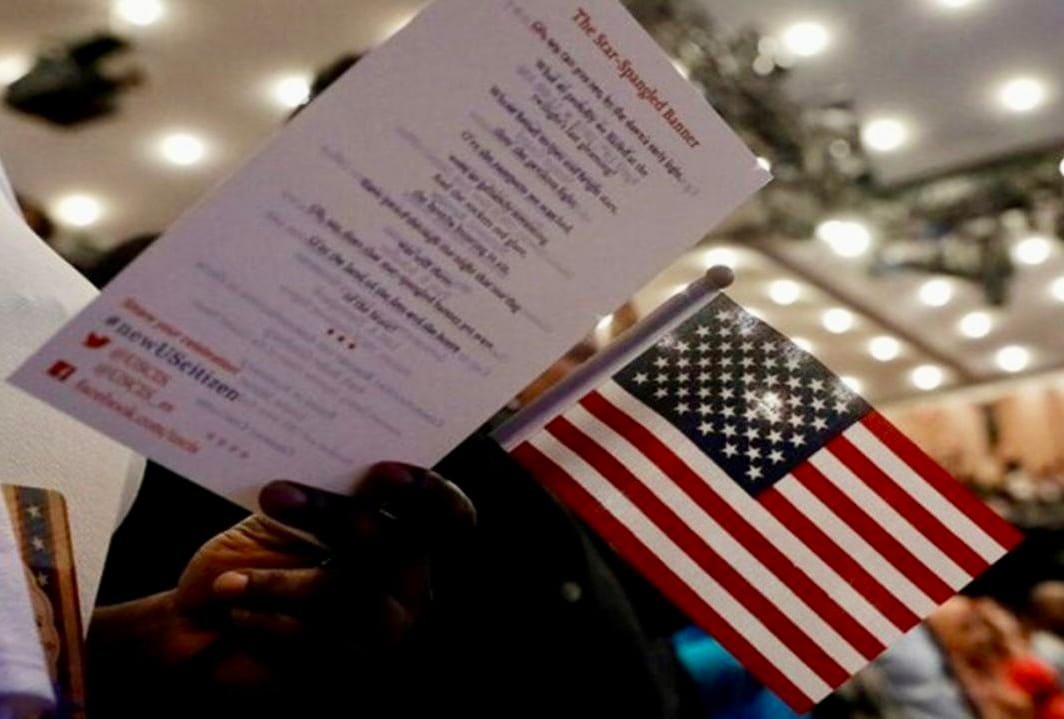 The Star-Spangled Banner
Oh, say can you see, by the dawn's early light,
What so proudly we hailed at the
twilight's last gleaming?
Whose broad stripes and bright stars,
thro' the perilous fight,
O'er the ramparts we watched,
were so gallantly streaming
And the rockets' red glare,
the bombs bursting in air,
Gave proof through the night that our flag
was still there;
Oh, say does that star-spangled banner yet wave
O'er the land of the free and the home
of the brave?
Share your
#newUScitizen
@USCIS
@USCIS_es
facebook.com/uscis